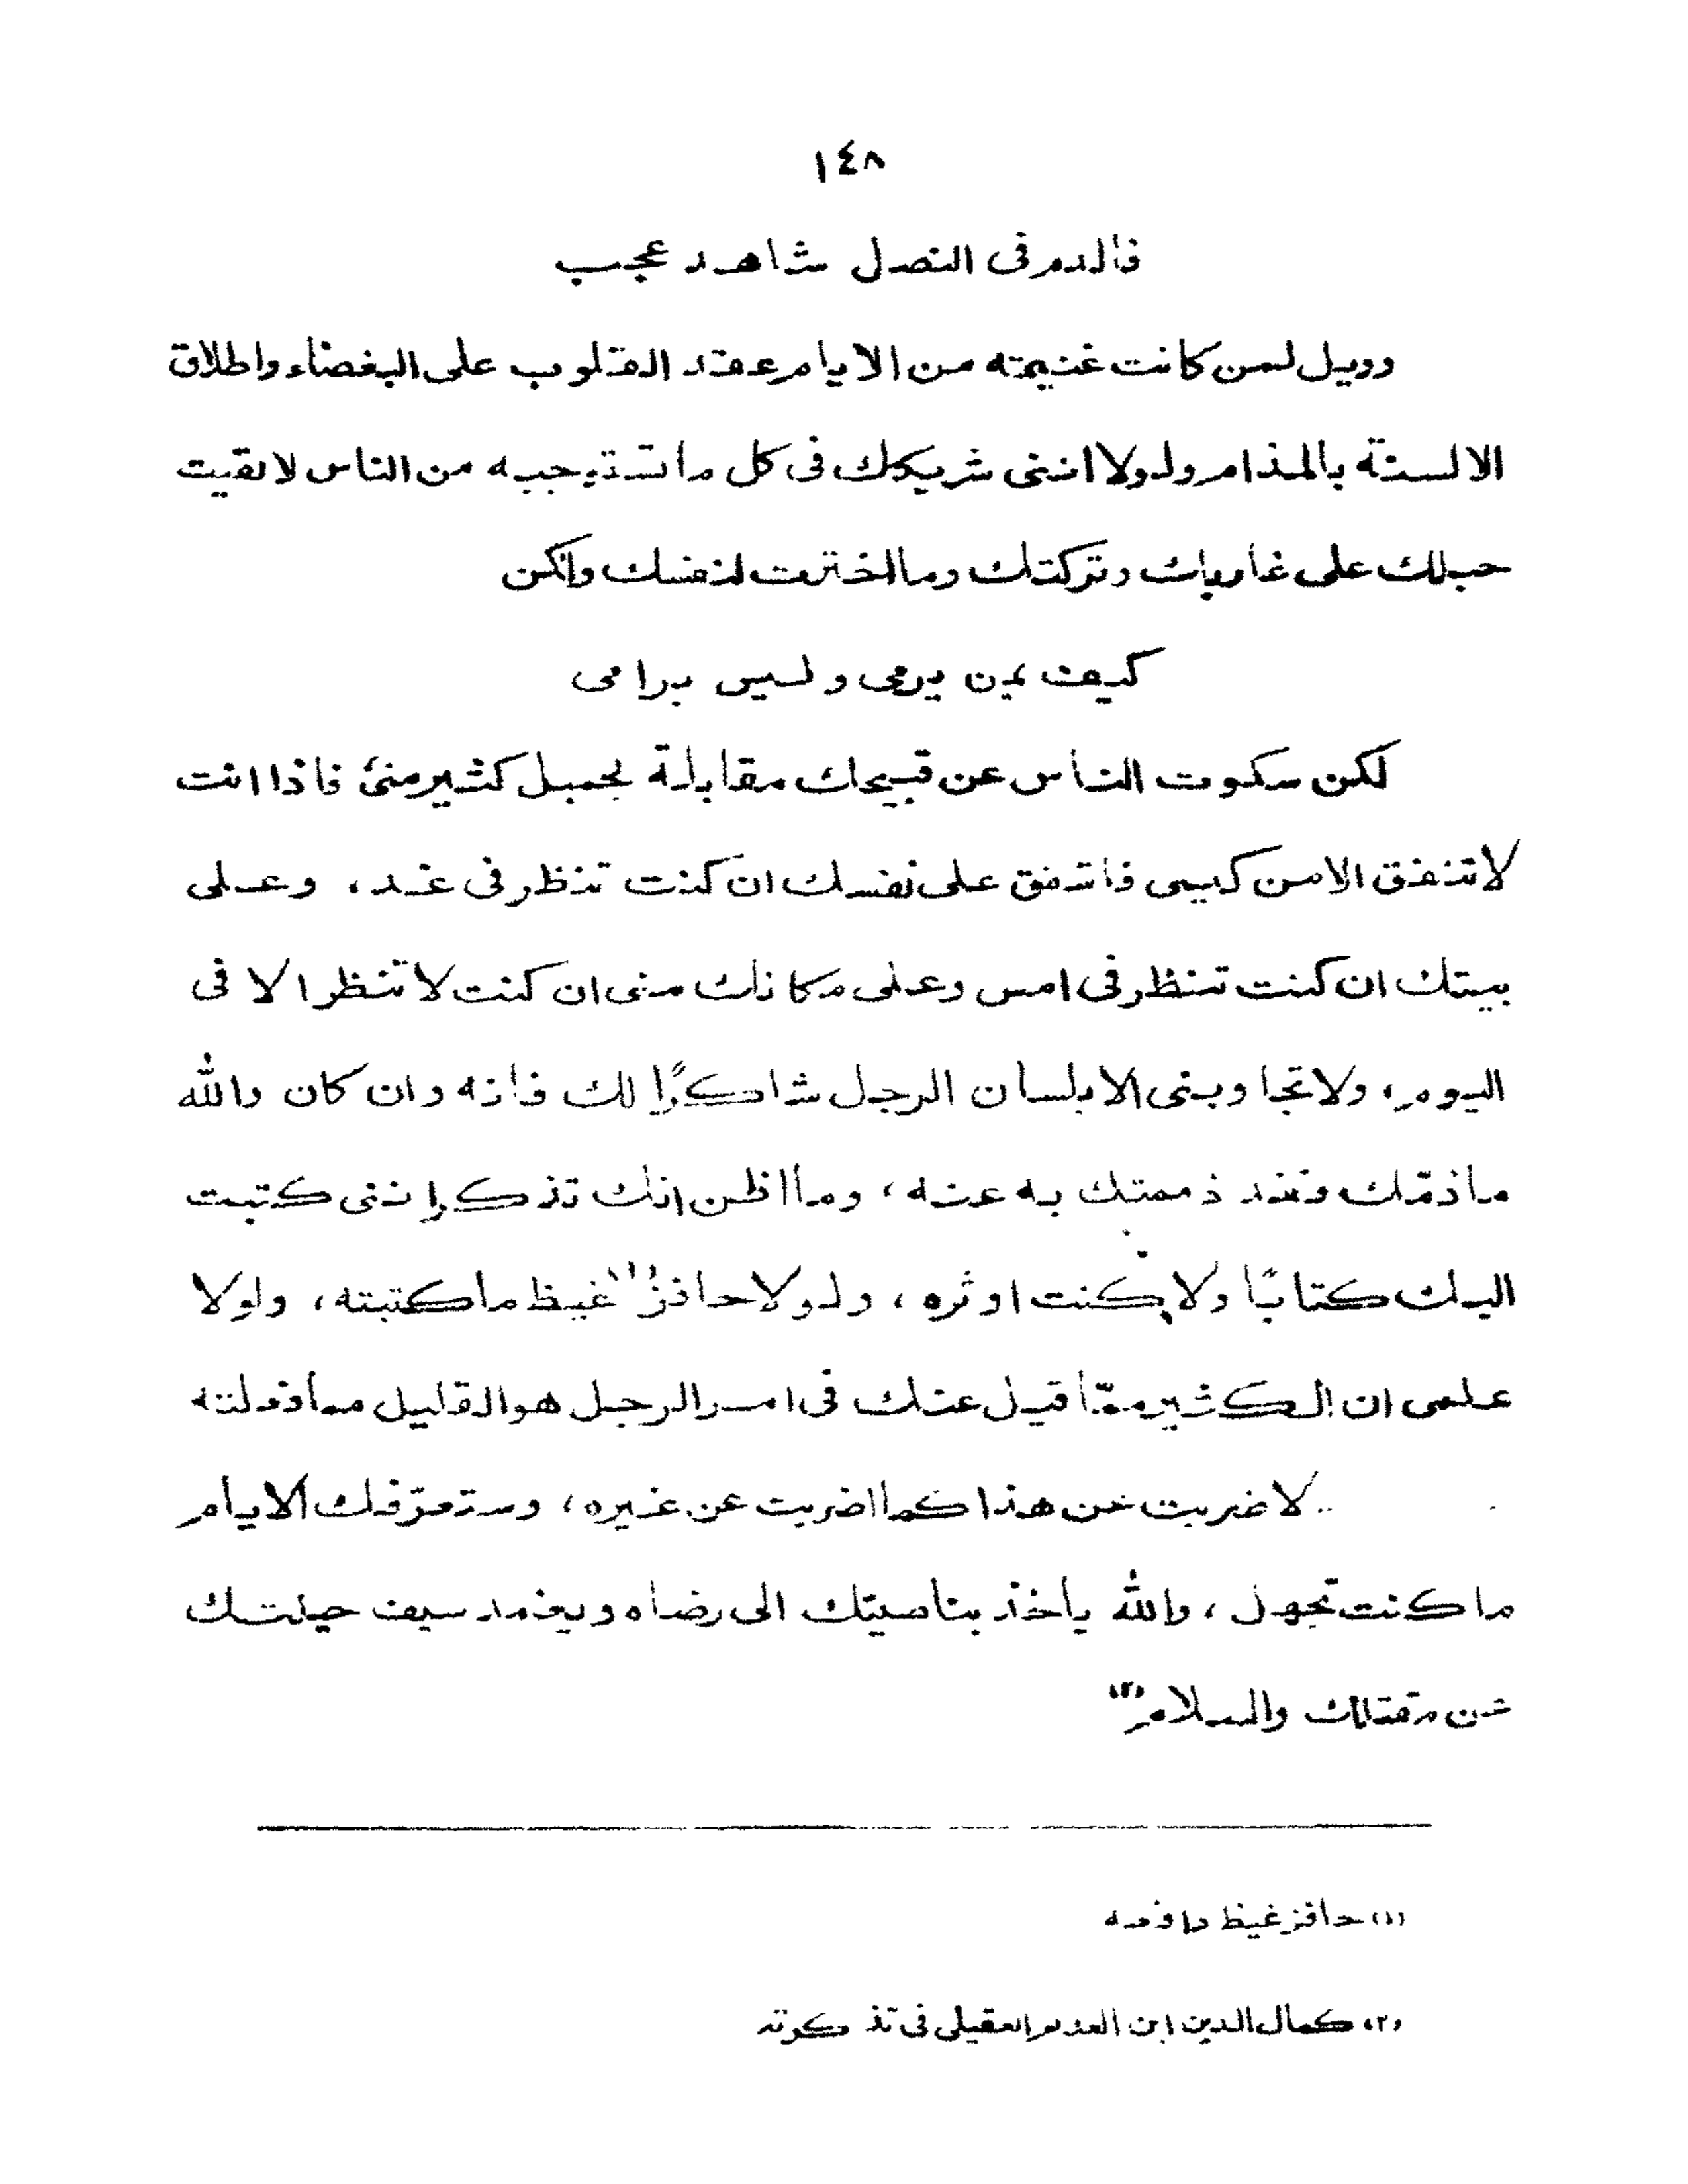 ١٤٨
فالدم في النصل شاهد عجب
وويل لمن كانت غنيمته من الايام عقد القلوب على البغضاء واطلاق
الالسنة بالمذام ولولا اننى شريكك فى كل ما تستوجبه من الناس لالقيت
حبلك على غاربك وتركتك وما اخترت لنفسك ولكن
كيف بمن يرمى وليس برامى
لكن سكوت الناس عن قبيحك مقابلة لجميل كثير منى فاذا انت
لا تنفق الا من كيسى فاشفق على نفسك ان كنت تنظر فى غد، وعلى
بيتك ان كنت تنظر فى امس وعلى مكانك منى ان كنت لا تنظر الا فى
اليوم، ولا تجاوبنى الا بلسان الرجل شاكرًا لك فانه وان كان والله
ما ذمّك فقد ذممتك به عنه، وما اظن انك تذكر اننى كتبت
اليك كتابًا ولا كنت اوثره، ولولا حافز(١) غيظ ما كتبته، ولولا
علمى ان الكثير ممّا قيل عنك فى امر الرجل هو القليل مما فعلته
لاضربت عن هذا كما اضربت عن غيره، وستعرّفك الايام
ما كنت تجهل، والله يأخذ بناصيتك الى رضاه ويغمد سيف حينك
عن مقتلك والسلام(٢)
(١) حافز غيظ دافعه
(٢) كمال الدين ابن العديم العقيلى فى تذكرته